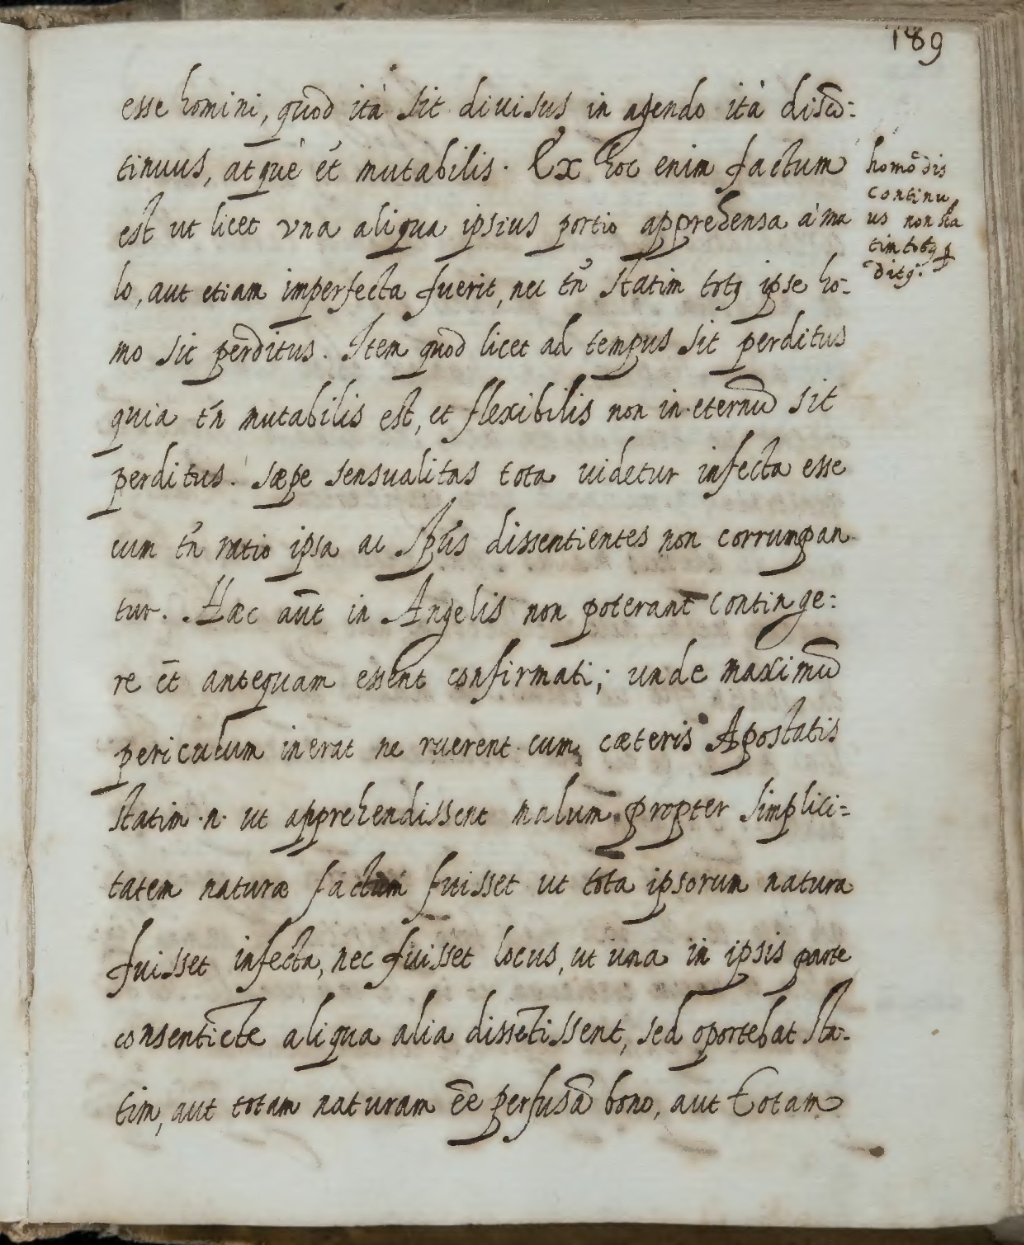 189
esse homini, quod ità sit diuisus in agendo ità discō:
tinuus, atquè ēt mutabilis. Ex hoc enim factum
est ut licet vna aliqua ipsius portio apprehensa à ma
lo, aut etiam imperfecta fuerit, nec tñ statim totq ipse ho-
mo sic perditus. Item quod licet ad tempus sit perditus
quia tñ mutabilis est, et flexibilis non in eternū sit
perditus. sæpe sensualitas tota uidetur infecta esse
cum tñ ratio ipsa ac Spūs dissentientes non corrumpan
tur. Hæc aūt in Angelis non poterant continge:
re ēt antequam essent confirmati; unde maximū
periculum inerat ne ruerent cum cæteris Apostatis
statim .n. ut apprehendissent malum propter simplici=
tatem naturæ factum fuisset ut tota ipsorum natura
fuisset infecta, nec fuisset locus, ut una in ipsis parte
consentiēte aliqua alia dissētissent, sed oportebat sta-
tim, aut totam naturam ēe perfusā bono, aut totam
homō dis
continu
us non sta
tim totq
ditq.